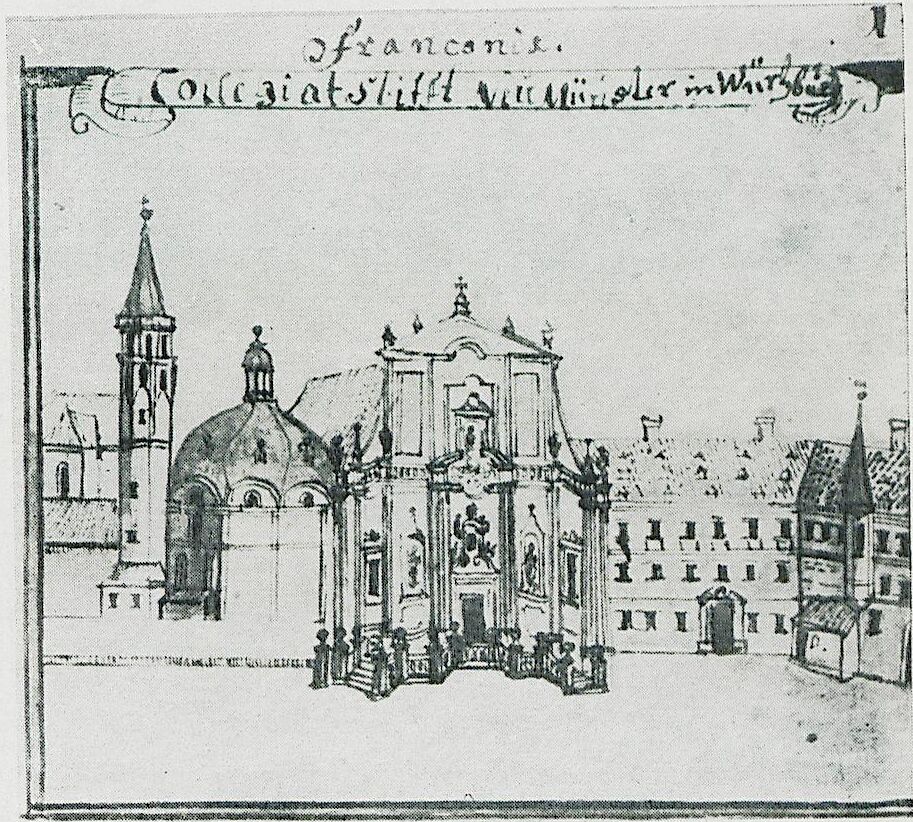 Franconie.
Collegiatstifft Neümünster in Würtzburg